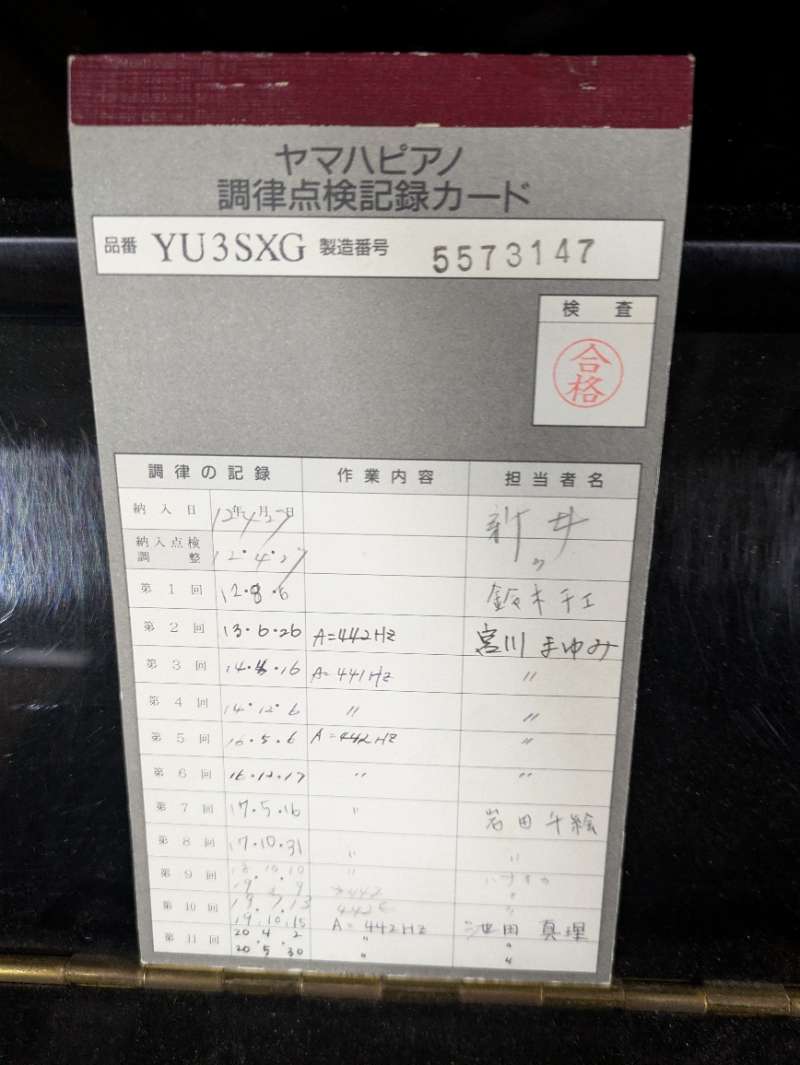 ヤマハピアノ
調律点検記録カード
品番 YU3SXG 製造番号 5573147
検査
合格
調律の記録 作業内容 担当者名
納入日 12年4月27日 新井
納入点検調整 12・4・27 〃
第1回 12・8・6 鈴木千工
第2回 13・6・26 A=442Hz 宮川まゆみ
第3回 14・4・16 A=441Hz 〃
第4回 14・12・6 〃 〃
第5回 16・5・6 A=442Hz 〃
第6回 16・12・17 〃 〃
第7回 17・5・16 〃 岩田千絵
第8回 17・10・31 〃 〃
第9回 18・10・10 〃
442
第10回 19・7・13 442
19.10.15 A=442Hz 池田真理
第11回 20 4 2 〃 〃
20・5・30 〃 〃